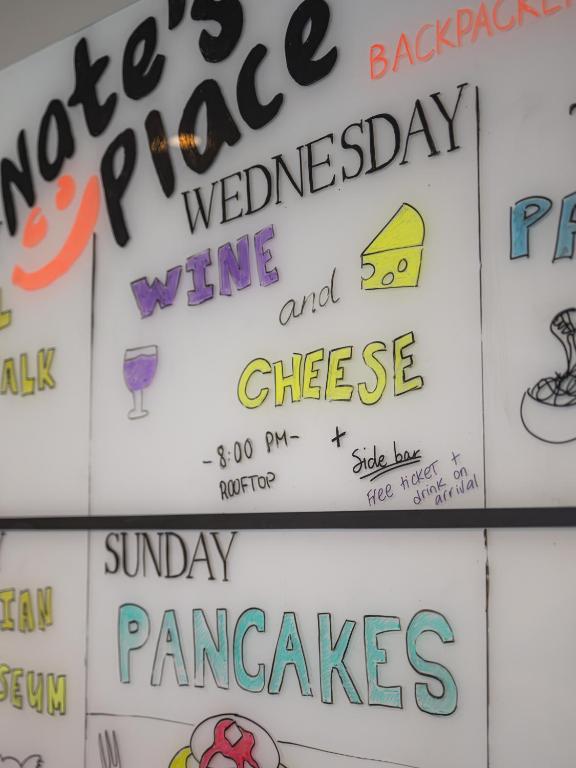 Nate's
Place
BACKPACKE
WEDNESDAY
WINE
and
CHEESE
-8:00 PM-
ROOFTOP
+
Side bar
Free ticket +
drink on
arrival
ALK
PA
SUNDAY
PANCAKES
IAN
SEUM